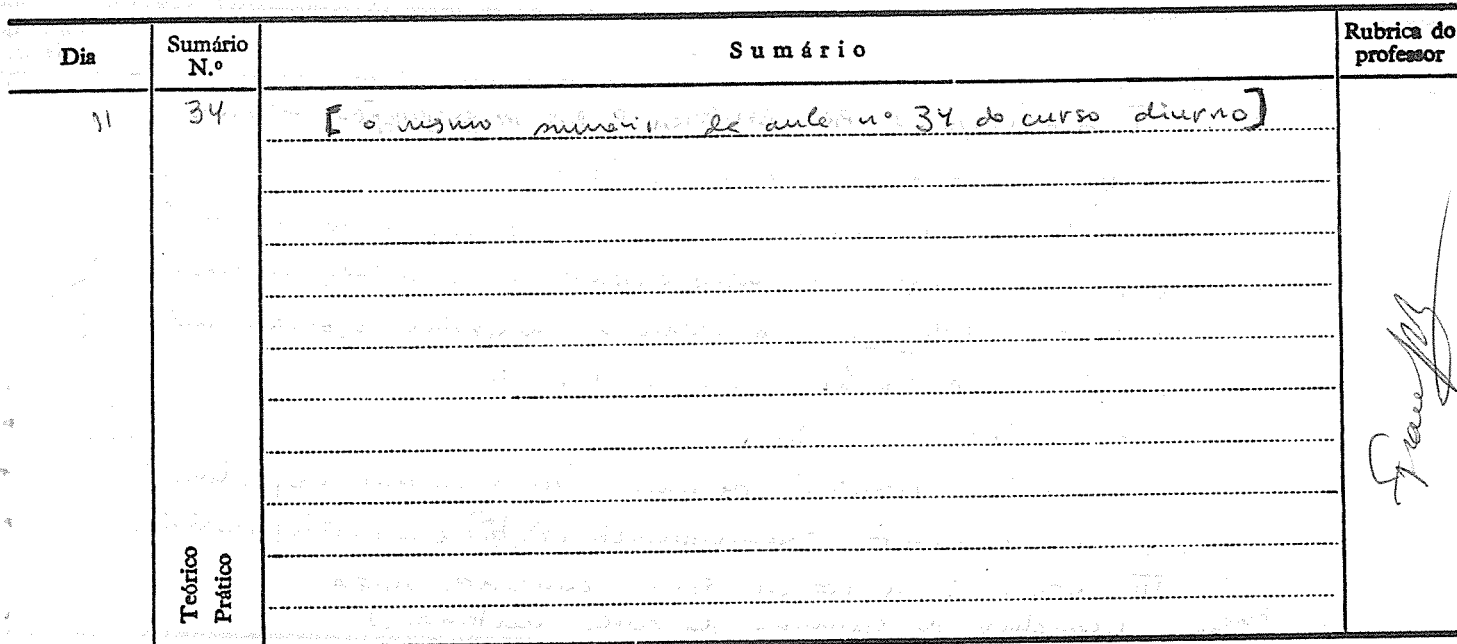 Dia
Sumário N.º
Sumário
Rubrica do professor
11
34
[o mesmo sumário da aula nº 34 do curso diurno]
Teórico
Prático